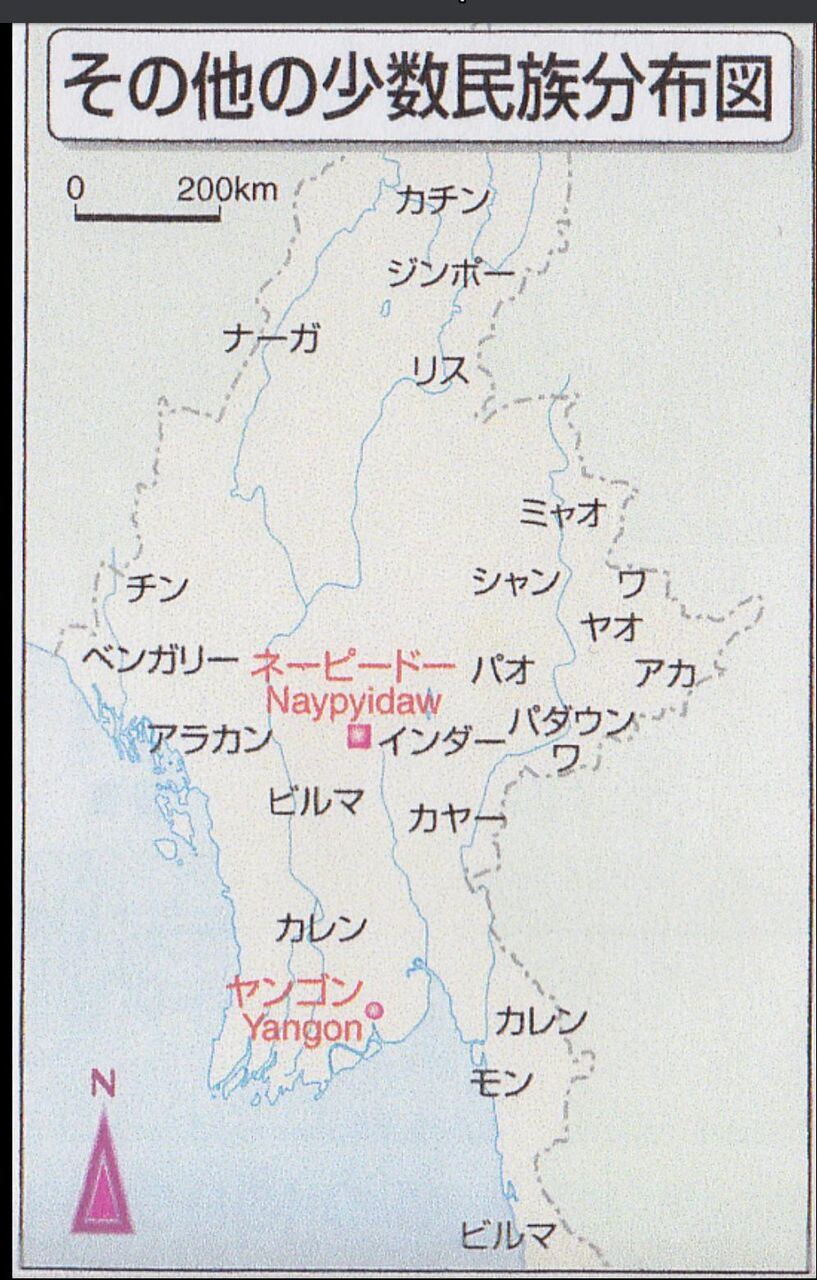 その他の少数民族分布図
0 200km
カチン
ジンポー
ナーガ
リス
ミャオ
チン
シャン
ワ
ヤオ
ベンガリー
ネーピードー
Naypyidaw
パオ
アカ
アラカン
インダー
パダウン
ワ
ビルマ
カヤー
カレン
ヤンゴン
Yangon
カレン
モン
N
ビルマ